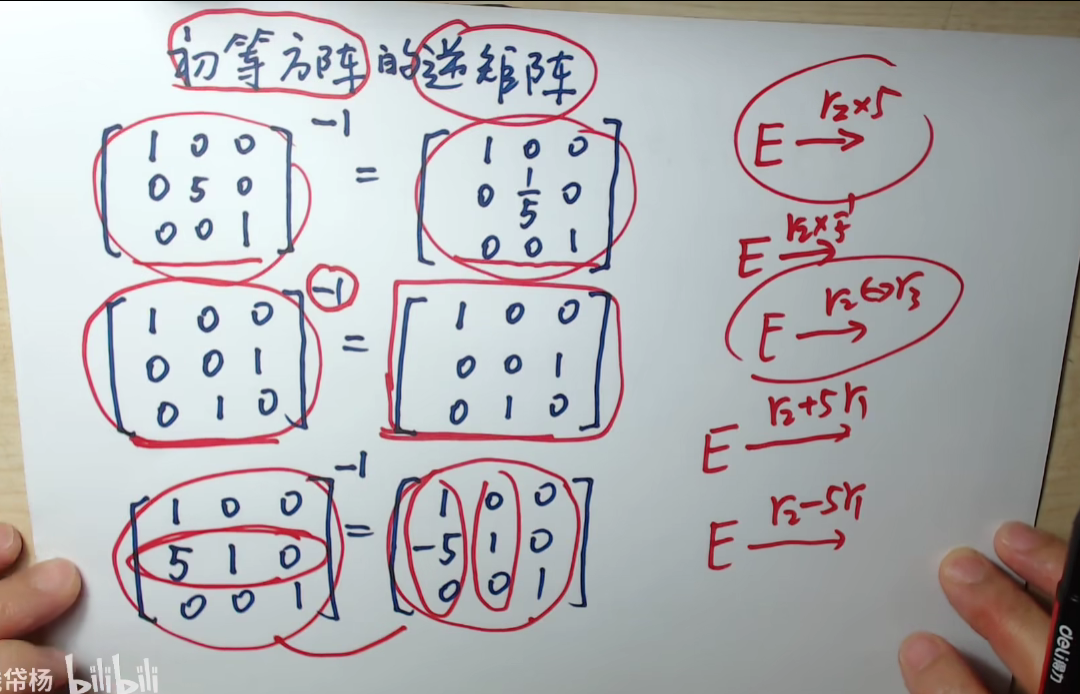 初等方阵的逆矩阵
[1 0 0
0 5 0
0 0 1]⁻¹ = [1 0 0
0 1/5 0
0 0 1]
[1 0 0
0 0 1
0 1 0]⁻¹ = [1 0 0
0 0 1
0 1 0]
[1 0 0
5 1 0
0 0 1]⁻¹ = [1 0 0
-5 1 0
0 0 1]
r₂×5
E →
r₂×1/5
E →
r₂↔r₃
E →
r₂+5r₁
E →
r₂-5r₁
E →
deli得力
帒杨 bilibili